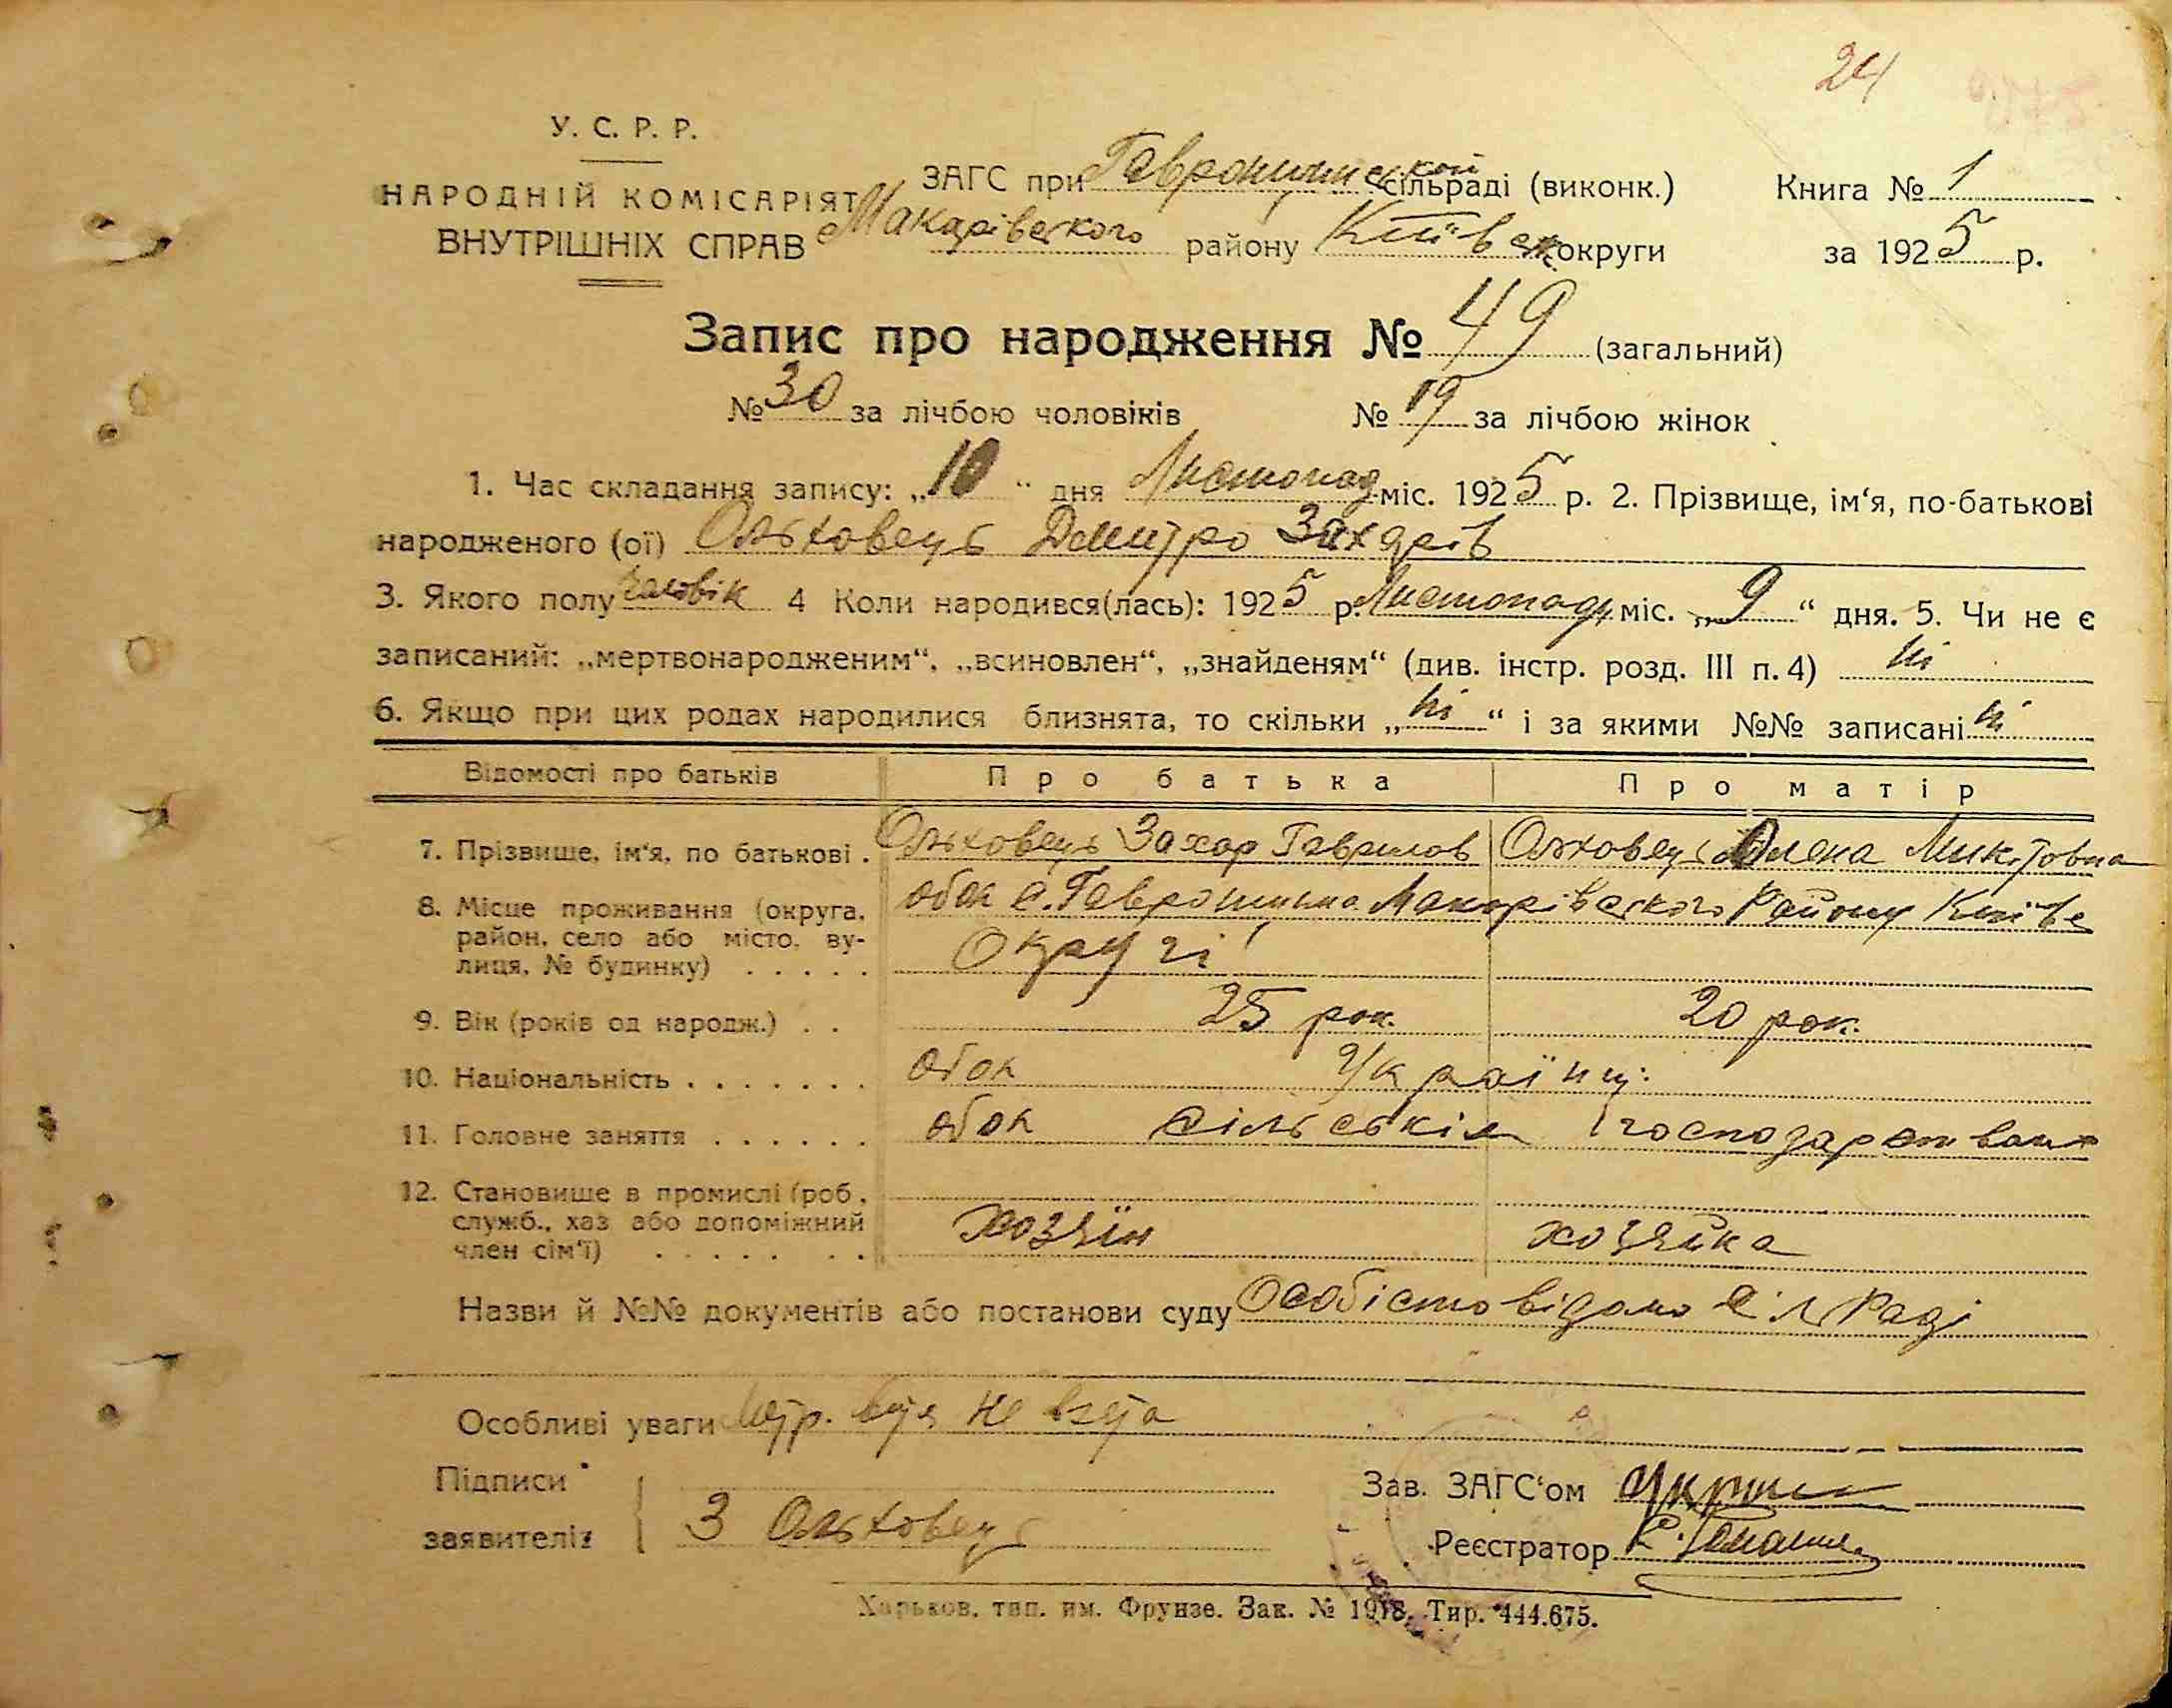 24
У. С. Р. Р.
НАРОДНІЙ КОМІСАРІЯТ
ВНУТРІШНІХ СПРАВ
ЗАГС при Гавронщинской сільраді (виконк.)
Макарівского району Київск округи
Книга № 1
за 1925 р.
Запис про народження № 49 (загальний)
№ 30 за лічбою чоловіків № 19 за лічбою жінок
1. Час складання запису: „10“ дня Листопад міс. 1925 р. 2. Прізвище, ім‘я, по-батькові
народженого (ої) Ольховець Дмитро Захарів
3. Якого полу чаловік 4 Коли народився(лась): 1925 р. Листопаду міс. „9“ дня. 5. Чи не є
записаний: „мертвонародженим“, „всиновлен“, „знайденям“ (див. інстр. розд. III п. 4) ні
6. Якщо при цих родах народилися близнята, то скільки „ні“ і за якими №№ записані ні
Відомості про батьків Про батька Про матір
7. Прізвище, ім‘я, по батькові . Ольховець Захар Гаврилов Ольховець Олена Микитовна
8. Місце проживання (округа, обоє с. Гавронщина Макарівского Району Київс
район, село або місто, ву- Округі
лиця, № будинку) . . . . .
9. Вік (років од народж.) . . 25 рок. 20 рок.
10. Національність . . . . . . . обоє Українці
11. Головне заняття . . . . . . обоє сільськім господарством
12. Становище в промислі (роб.,
служб., хаз або допоміжний хозяїн хозяйка
член сім‘ї) . . . . . . .
Назви й №№ документів або постанови суду Особісто відомо сіл Раді
Особливі уваги не взята
Підписи
заявителів З Ольховець
Зав. ЗАГС‘ом
Реєстратор
Харьков, тип. им. Фрунзе. Зак. № 1918. Тир. 444.675.